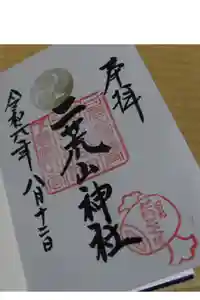 奉拝
二荒山神社
令和六年八月十二日